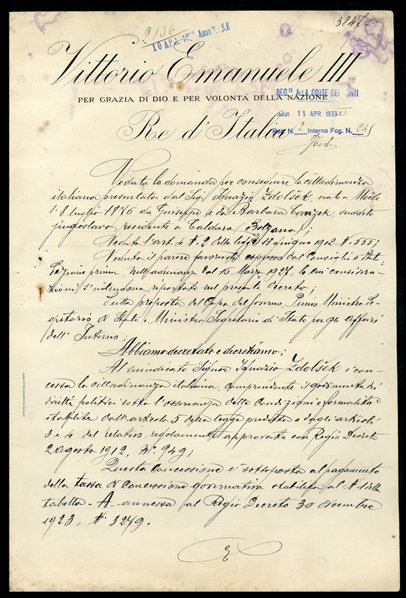 3847
10 APR. 1933 Anno XI E.F.
Vittorio Emanuele III
PER GRAZIA DI DIO E PER VOLONTÀ DELLA NAZIONE
REG. ALLA CORTE DEI CONTI
addì 11 APR. 1933
Re d'Italia
Reg. N. 2 Interno Fog. N.
Veduta la domanda per conseguire la cittadinanza
italiana presentata dal Sig. Ignazio Zdolšek nato a
l'8 luglio 1875 da Giuseppe e da Barbara suddito
jugoslavo, residente a Caldaro, Bolzano;
Veduto l'art. 4 N. 2 della legge 13 giugno 1912 N. 555;
Veduto il parere favorevole espresso dal Consiglio di Stato
Sezione prima nell'adunanza del 15 Marzo 1927, le cui considera-
zioni s'intendono riportate nel presente Decreto;
Sulla proposta del Capo del Governo Primo Ministro Se-
gretario di Stato e Ministro Segretario di Stato per gli Affari
dell'Interno;
Abbiamo decretato e decretiamo;
Al suindicato Signor Ignazio Zdolšek è con-
cessa la cittadinanza italiana comprendente il godimento dei
diritti politici sotto l'osservanza delle condizioni e formalità
stabilite dall'articolo 5 della legge predetta e dagli articoli
3 e 4 del relativo regolamento approvato con Regio Decreto
2 agosto 1912, N. 949;
Questa concessione è sottoposta al pagamento
della tassa di concessione governativa stabilita al N. della
tabella - A - annessa al Regio Decreto 30 dicembre
1923, N. 3279.